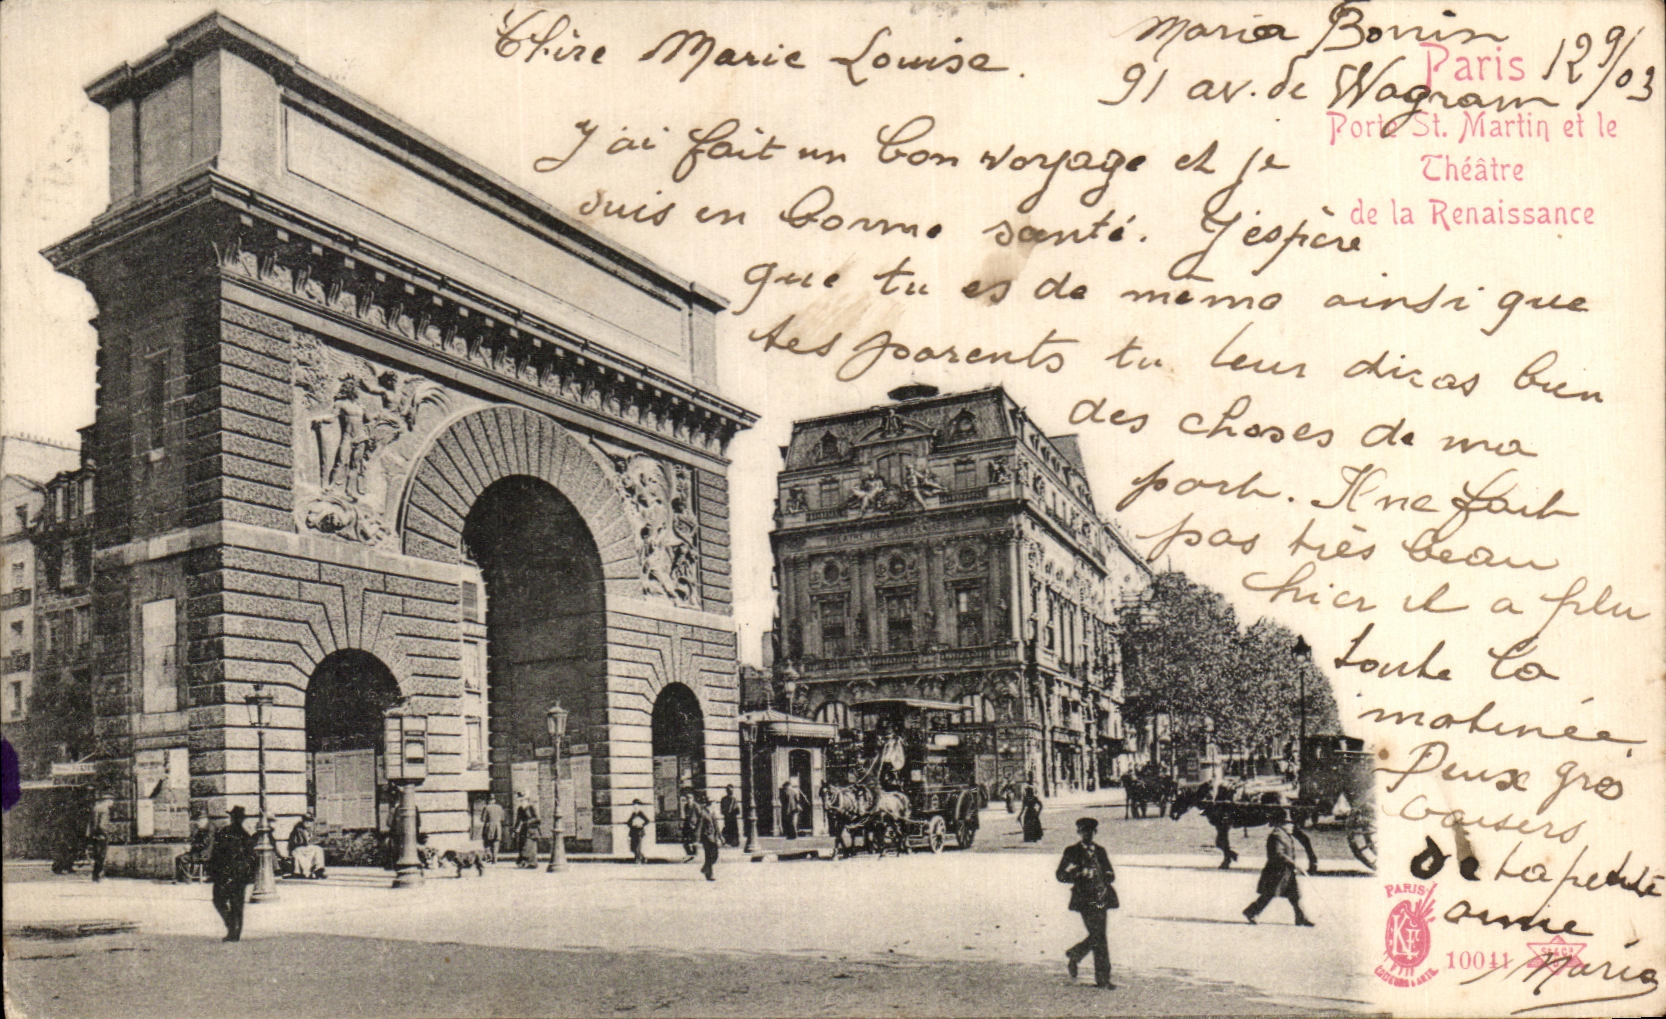 Chère Marie Louise.
Maria Bonin
91 av. de Wagram
12 9/03
Paris
Porte St. Martin et le
Théâtre
de la Renaissance
J'ai fait un bon voyage et je
suis en bonne santé. J'espère
que tu es de même ainsi que
tes parents tu leur diras bien
des choses de ma
part. Il ne fait
pas très beau
hier il a plu
toute la
matinée.
Deux gros
baisers
de ta petite
amie
Maria
PARIS
KF
10041